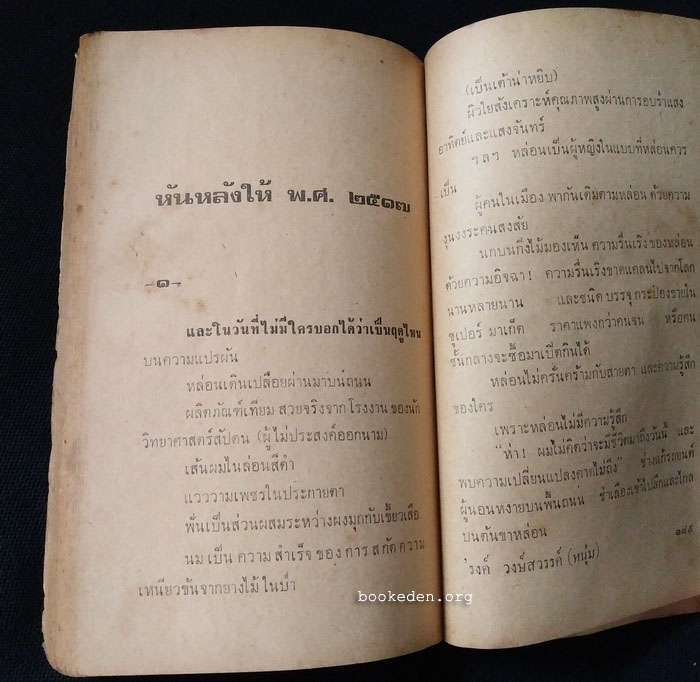 หันหลังให้ พ.ศ. ๒๕๑๗
-๑-
และในวันที่ไม่มีใครบอกได้ว่าเป็นฤดูไหน
บนความแปรผัน
หล่อนเดินเปลือยผ่านมาบนถนน
ผลิตภัณฑ์เทียม สวยจริงจากโรงงานของนัก
วิทยาศาสตร์สัปดน (ผู้ไม่ประสงค์ออกนาม)
เส้นผมไนล่อนสีดำ
แวววามเพชรในประกายตา
ฟันเป็นส่วนผสมระหว่างผงมุกกับเขี้ยวเสือ
นม เป็น ความ สำเร็จ ของ การ สกัด ความ
เหนียวข้นจากยางไม้ในป่า
bookeden.org
(เป็นเต้าน่าหยิบ)
ผิวใยสังเคราะห์คุณภาพสูงผ่านการอบรำแสง
อาทิตย์และแสงจันทร์
ฯลฯ หล่อนเป็นผู้หญิงในแบบที่หล่อนควร
เป็น
ผู้คนในเมือง พากันเดินตามหล่อน ด้วยความ
งุนงงระคนสงสัย
นกบนกิ่งไม้มองเห็น ความรื่นเริง ของหล่อน
ด้วยความอิจฉา! ความรื่นเริงขาดแคลนไปจากโลก
นานหลายนาน และชนิด บรรจุ กระป๋องขายใน
ซูเปอร์ มาเก็ต ราคาแพงกว่าคนจน หรือคน
ชั้นกลางจะซื้อมาเปิดกินได้
หล่อนไม่ครั่นคร้ามกับสายตา และความรู้สึก
ของใคร
เพราะหล่อนไม่มีความรู้สึก
"ห่า! ผมไม่คิดว่าจะมีชีวิตมาถึงวันนี้ และ
พบความเปลี่ยนแปลงคาดไม่ถึง" ช่างแก้รถยนต์
ผู้นอนหงายบนพื้นถนน ชำเลืองเข้าไปลึกและไกล
บนต้นขาหล่อน
'รงค์ วงษ์สวรรค์ (หนุ่ม)
๑๘๙